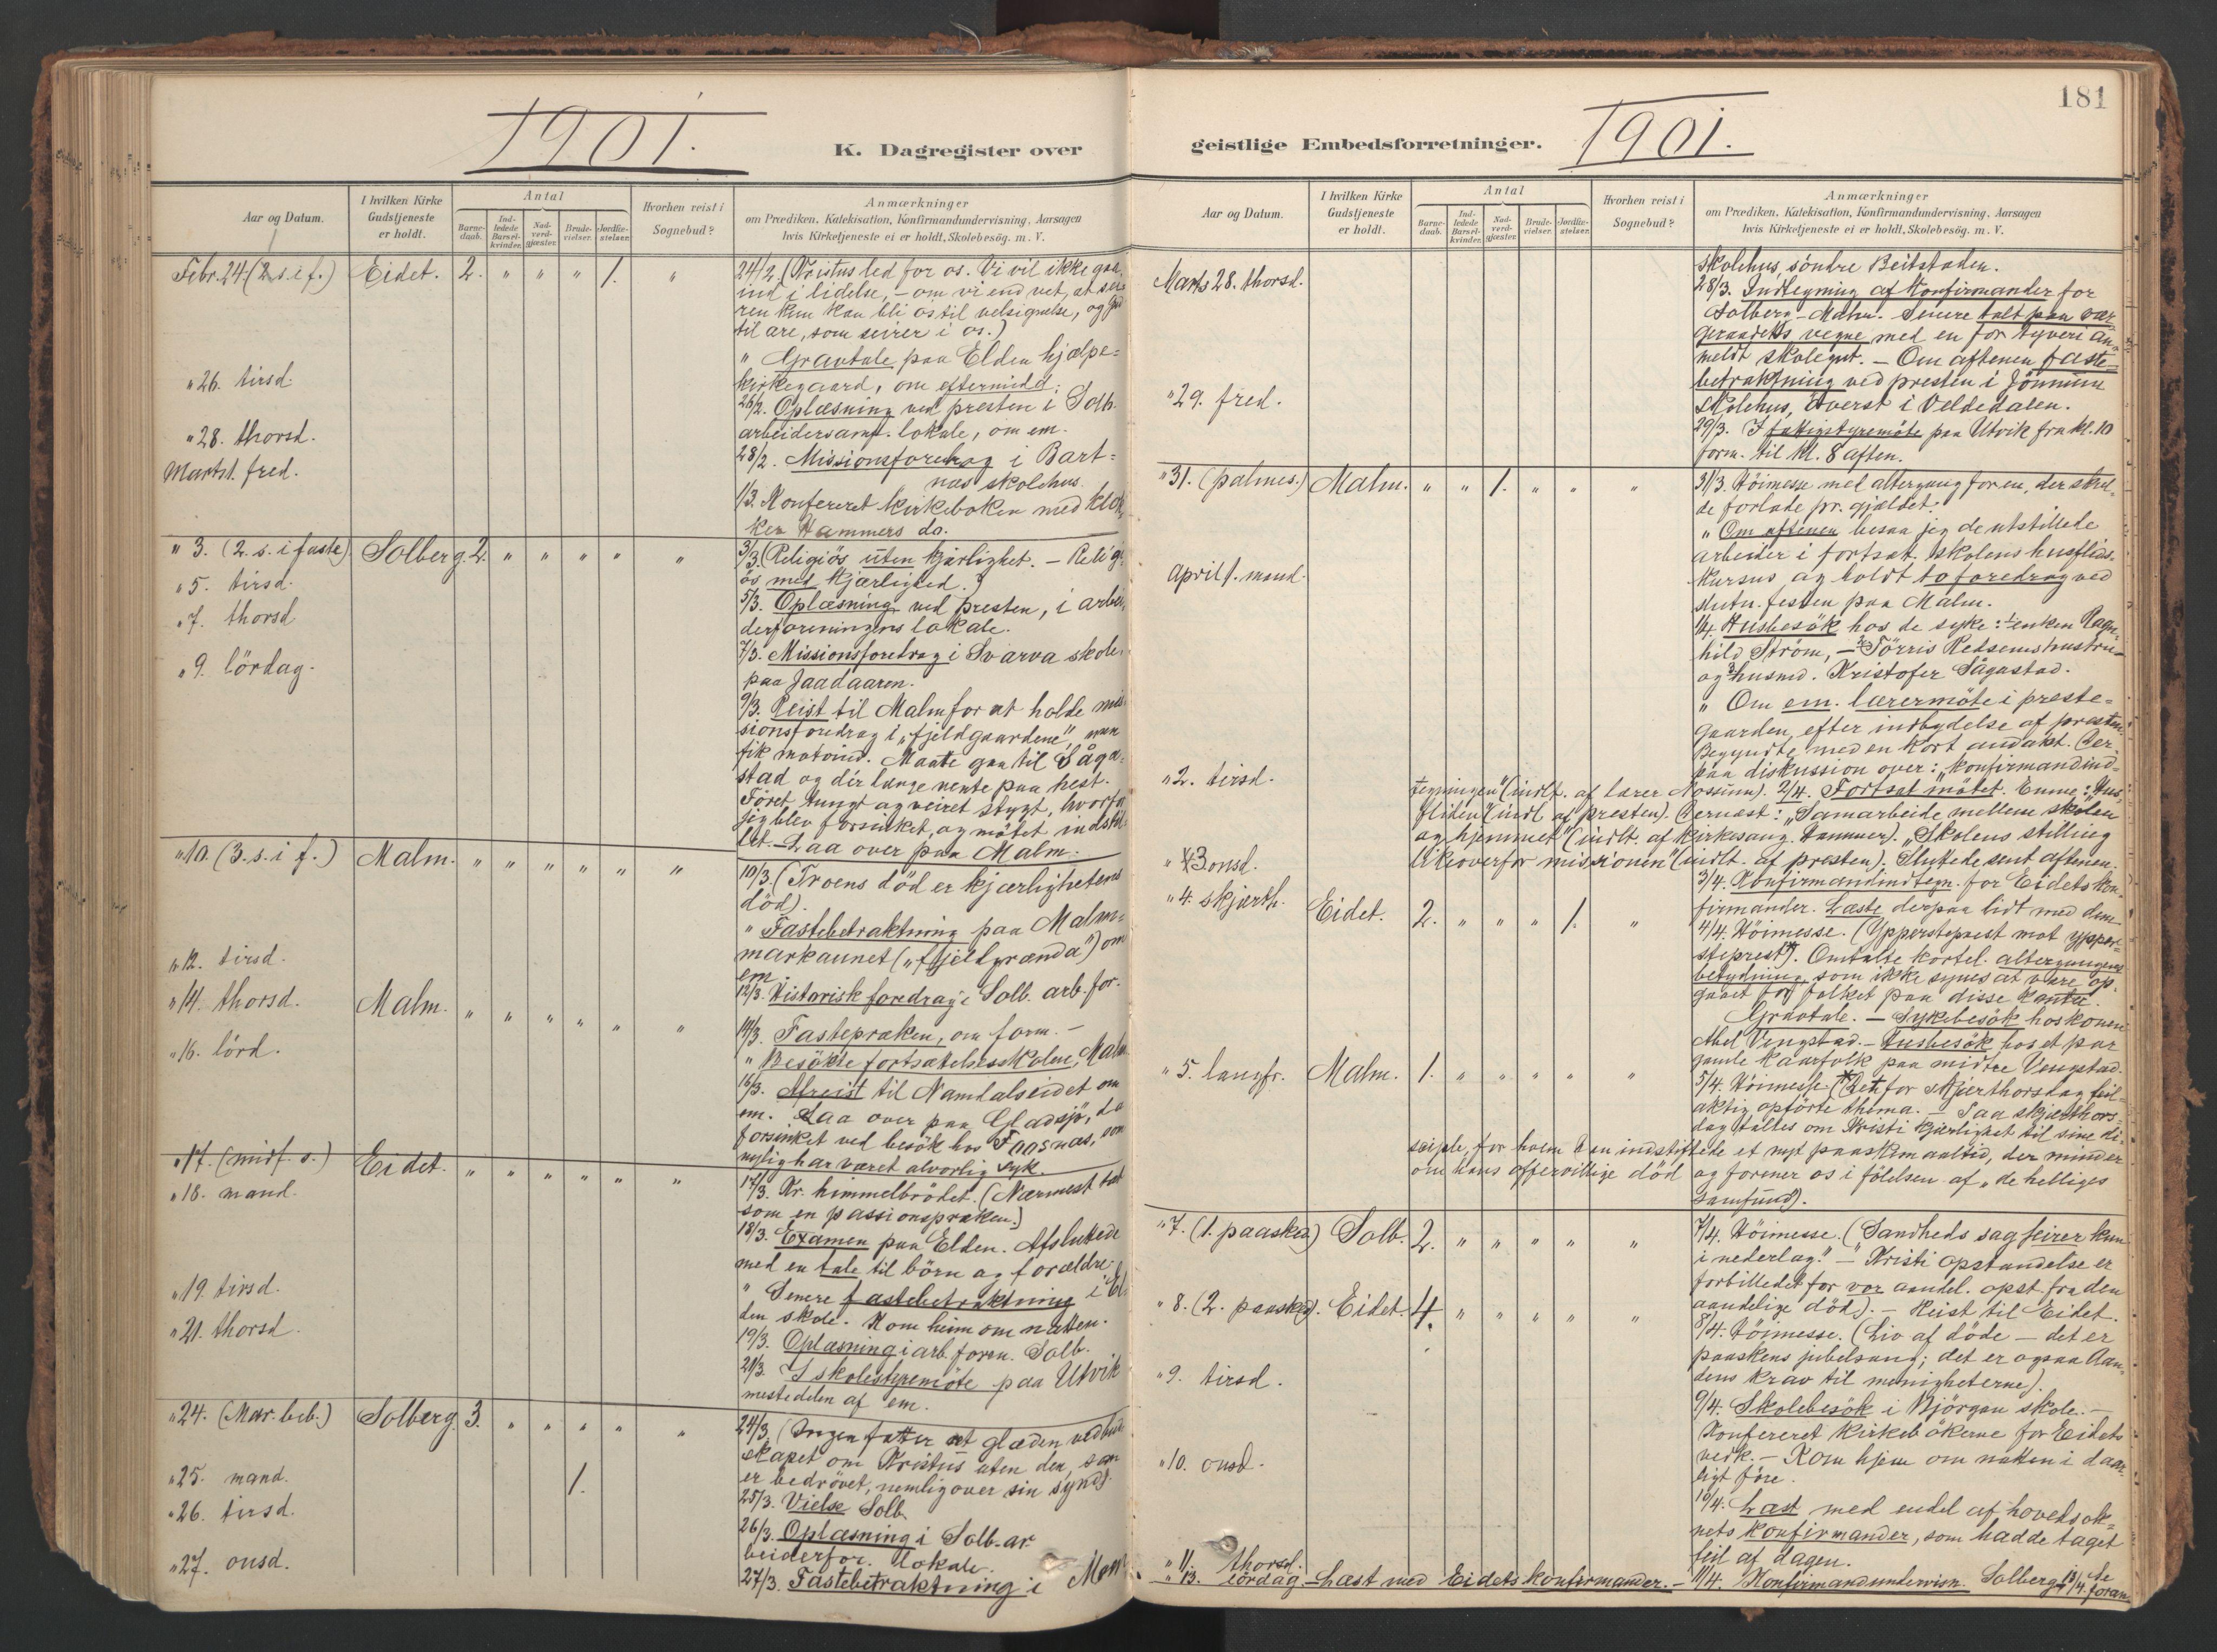 1901.
K. Dagregister over
Aar og Datum.
I hvilken Kirke Gudstjeneste er holdt.
Antal
Barne-daab.
Ind-ledede Barsel-kvinder.
Nad-verd-gjæster.
Brude-vielser.
Jordfæ-stelser.
Hvorhen reist i Sognebud?
Anmærkninger
om Prædiken, Katekisation, Konfirmandundervisning, Aarsagen
hvis Kirketjeneste ei er holdt, Skolebesög. m. V.
Febr. 24 (2. s. i f.) Eidet. 2. " " " 1. "
24/2. (Kristus led for os. Vi vil ikke gaa
ind i lidelse, – om vi end vet, at
ren kun kan bli os til velsignelse, og Gud
til ære, som seirer i os.)
" Gravtale paa Elden hjælpe=
kirkegaard, om eftermidd.
" 26. tirsd.
26/2. Oplæsning ved presten i Solb.
arbeidersamf. lokale, om em.
" 28. thorsd.
28/2. Missionsforedrag i Bart=
næs skolehus.
Marts 1. fred.
1/3. Konfereret kirkeboken med klok
ker Hammers do.
" 3. (2. s. i faste) Solberg. 2. " " " " "
3/3. (Religiös uten kjærlighet. – Religi
ös med kjærlighed.)
" 5. tirsd.
5/3. Oplæsning ved presten, i arbei
derforeningens lokale.
" 7. thorsd
7/3. Missionsforedrag i Svarva skole,
paa Jaadaaren.
" 9. lördag.
9/3. Reist til Malm for at holde mis
sionsforedrag i "fjeldgaardene", men
fik motvind. Maate gaa til Såga=
stad og dér længe vente paa hest.
Föret tungt og veiret stygt, hvorfor
jeg blev forsinket, og mötet indstil
let. – Laa over paa Malm.
" 10. (3. s. i f.) Malm. " " " " " "
10/3. (Troens död er kjærlighetens
död).
" Fastebetraktning paa Malm=
markaunet ("fjeldgrænda") om
em.
" 12. tirsd.
12/3. Historisk foredrag i Solb. arb. for.
" 14. thorsd. Malm. " " " " " "
14/3. Fastepræken, om form. –
" Besökte fortsættelsesskolen, Malm
" 16. lörd.
16/3. Afreist til Namdalseidet om
em. Laa over paa Gladsjö, da
forsinket ved besök hos Faasnæs, som
nylig har været alvorlig syk.
" 17. (midf. s.) Eidet. " " " " " "
17/3. Kr. himmelbrödet. (Nærmest tat
som en passionspræken.)
" 18. mand.
18/3. Examen paa Elden. Afsluttede
med en tale til börn og forældre.
" Senere fastebetraktning i El
den skole. Kom heim om natten.
" 19. tirsd.
19/3. Oplæsning i arb. foren. Solb.
" 21. thorsd.
21/3. I skolestyremöte paa Utvik
mestedelen af em.
" 24. (Mar. beb.) Solberg. 3. " " " " "
24/3. (Ingen fatter ret glæden ved bud
skapet om Kristus uten den, som
er bedrövet, nemlig over sin synd)
" 25. mand. 1.
25/3. Vielse Solb.
" 26. tirsd.
26/3. Oplæsning i Solb. ar
beiderfor. lokale.
" 27. onsd.
27/3. Fastebetraktning i
181
geistlige Embedsforretninger.
1901.
Aar og Datum.
I hvilken Kirke Gudstjeneste er holdt.
Antal
Barne-daab.
Ind-ledede Barsel-kvinder.
Nad-verd-gjæster.
Brude-vielser.
Jordfæ-stelser.
Hvorhen reist i Sognebud?
Anmærkninger
om Prædiken, Katekisation, Konfirmandundervisning, Aarsagen
hvis Kirketjeneste ei er holdt, Skolebesög. m. V.
skolehus, söndre Beitstaden.
Marts 28. thorsd.
28/3. Indtegning af Konfirmander for
Solberg – Malm. Senere talt paa vær
geraadets vegne med en for tyveri an
meldt skolegut. – Om aftenen faste
betraktning ved presten i
skolehus, överst i Veldedalen.
" 29. fred.
29/3. I fattigstyremöte paa Utvik fra kl. 10
form. til kl. 8 aften.
" 31. (palmes.) Malm. " " 1. " " "
31/3. Höimesse med altergang for en, der skul
de forlade pr. gjældet.
" Om aftenen besaa jeg de utstillede
arbeider i fortsæt. skolens husflids
kursus og holdt to foredrag ved
slutn. festen paa Malm.
April 1. mand.
1/4. Husbesök hos de syke: 1) enken Ragn
hild Ström, – 2) Törris Redsems hustru
og 3) husmd. Kristofer Sågastad.
" Om em. lærermöte i preste=
gaarden, efter indbydelse af presten.
Begyndte med en kort andakt. Der
paa diskussion over: "konfirmandind=
tegningen" (indl. af lærer Rossum). 2/4. Fortsat mötet. Emne: "Hus
" 2. tirsd.
fliden" (indl. af presten). Dernæst: "Samarbeide mellem skolen
og hjemmet" (indl. af kirkesang. Hammer). "Skolens stilling
likeoverfor missionen" (indl. af presten). Sluttede sent aftenen.
" 3 onsd.
3/4. Konfirmandindtegn. for Eidets kon
firmander. Læste derpaa lidt med dem.
" 4. skjærth. Eidet. 2. " " " 1. "
4/4. Höimesse. (Yppersteprest mot ypper
steprest). Omtalte kortel. altergangens
betydning, som ikke synes at være op
gaaet for folket paa disse kanter.
Gravtale. – Sykebesök hos konen
Abel Vengstad. – Husbesök hos et par
gamle kaarfolk paa midtre Vengstad.
" 5. langfr. Malm. 1. " " " " "
5/4. Höimesse. (Det for skjærthorsdag feil
aktig opförte thema. – Paa skjærthors
dag taltes om Kristi kjærlighet til sine di
sciple, for hvem han indstiftede et nyt paaskemaaltid, der minder
om hans offervillige död og forener os i fölelsen af "de helliges
samfund).
" 7. (1. paasked) Solb. 2. " " " " "
7/4. Höimesse. ("Sandheds sag seirer kun
i nederlag." – "Kristi opstandelse er
forbilledet for vor aandel. opst. fra den
aandelige död). – Reist til Eidet.
" 8. (2. paasked). Eidet. 4. " " " " "
8/4. Höimesse. (Liv af döde – det er
paaskens jubelsang; det er ogsaa Aan
dens krav til menigheterne).
" 9. tirsd.
9/4. Skolebesök i Björgan skole. –
Konfereret kirkebökerne for Eidets
vedk. – Kom hjem om natten i daar
ligt före.
" 10. onsd.
10/4. Læst med endel af hovedsok=
nets konfirmander, som hadde taget
feil af dagen.
" 11. thorsd. 11/4. Konfirmandundervisn. Solberg
" 13. lördag – Læst med Eidets konfirmander. –